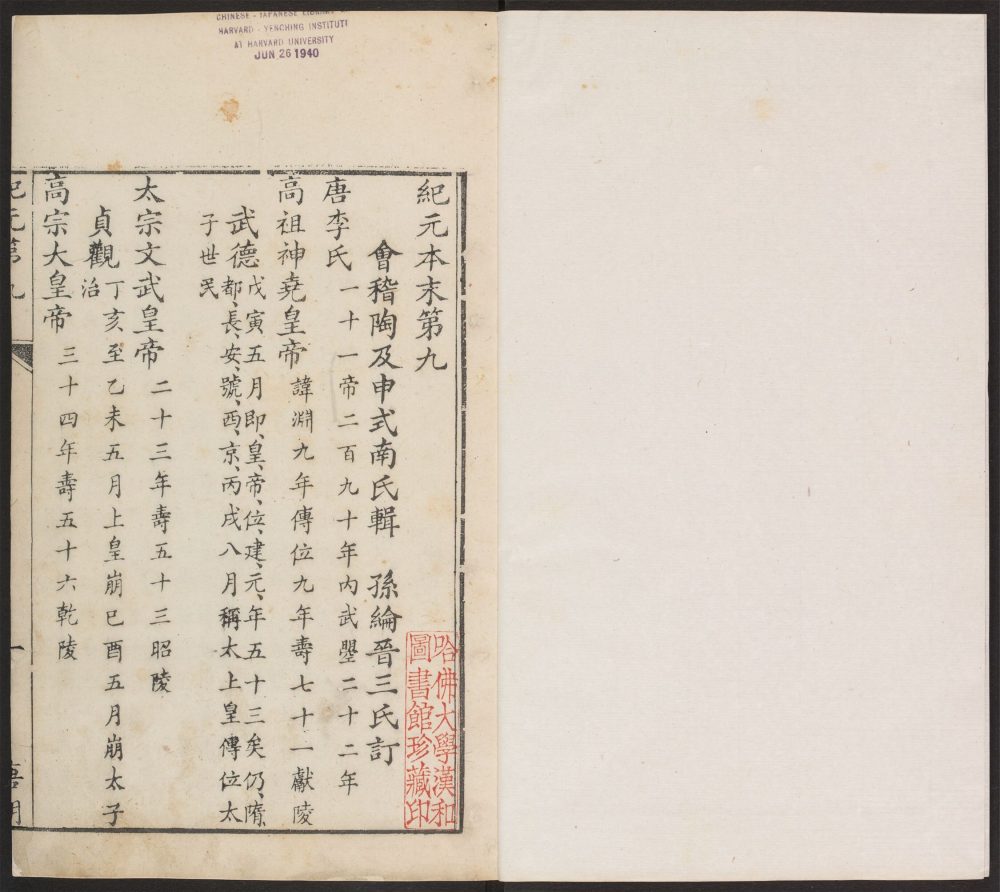 CHINESE - JAPANESE LIBRARY
HARVARD - YENCHING INSTITUTE
AT HARVARD UNIVERSITY
JUN 26 1940
紀元本末第九
會稽陶及申式南氏輯 孫綸晉三氏訂
唐李氏一十一帝二百九十年內武曌二十二年
高祖神堯皇帝諱淵九年傳位九年壽七十一獻陵
武德戊寅五月即、皇、帝、位、建、元、年五十三矣仍、隋、
都、長、安、號、西、京、丙戌八月稱太上皇傳位太
子世民
太宗文武皇帝二十三年壽五十三昭陵
貞觀丁亥至乙未五月上皇崩已酉五月崩太子
治
高宗大皇帝三十四年壽五十六乾陵
紀元第九
一
哈佛大學漢和
圖書館珍藏印